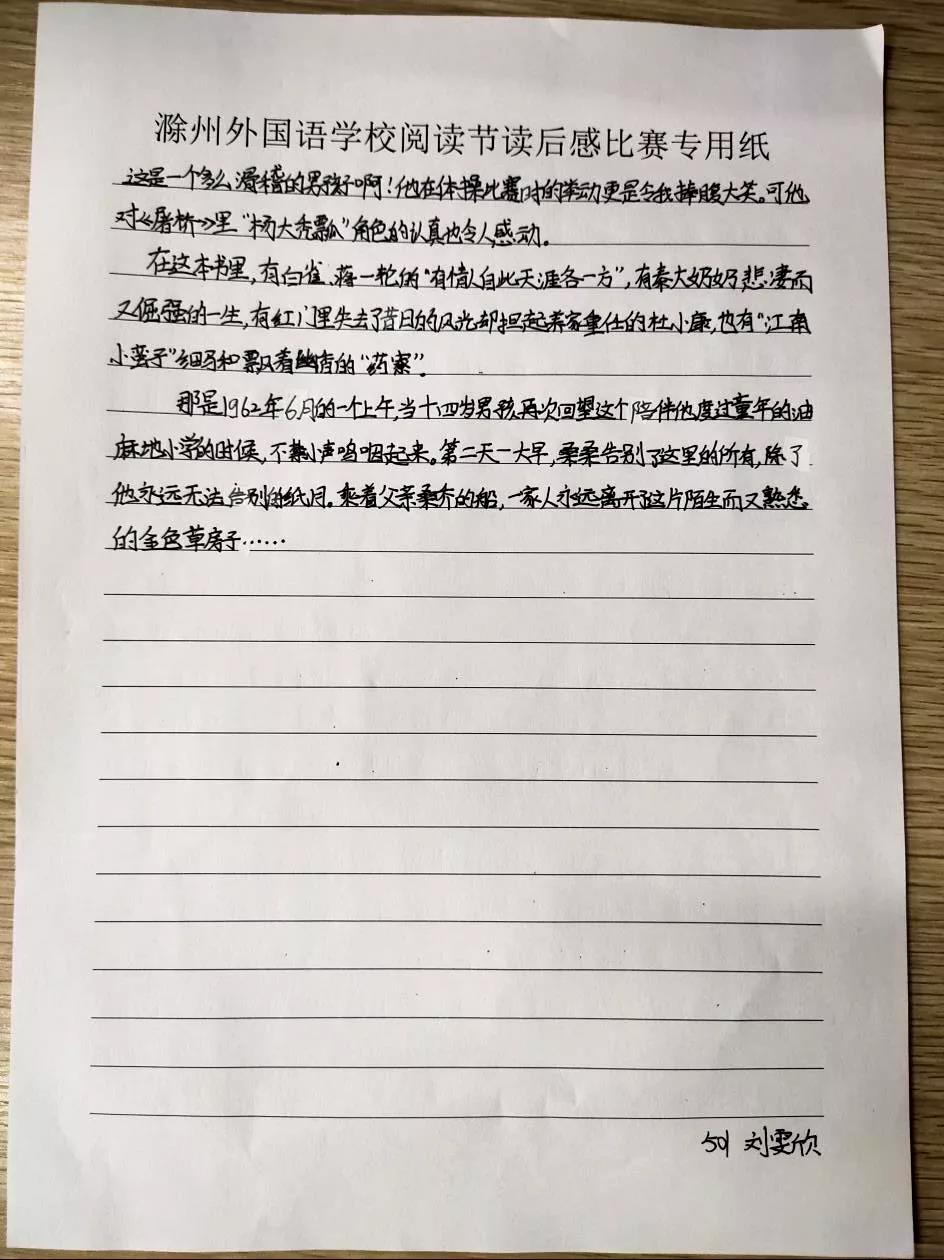 滁州外国语学校阅读节读后感比赛专用纸
这是一个多么滑稽的男孩子啊！他在体操比赛时的举动更是令我捧腹大笑。可他
对《屠桥》里“杨大秃瓢”角色的认真也令人感动。
在这本书里，有白雀、蒋一轮的“有情人自此天涯各一方”，有秦大奶奶悲凄而
又倔强的一生，有红门里失去了昔日的风光却担起养家重任的杜小康，也有“江南
小蛮子”细马和飘着幽情的“药寮”。
那是1962年6月的一个上午，当十四岁男孩再次回望这个陪伴他度过童年的油
麻地小学的时候，不禁小声呜咽起来。第二天一大早，桑桑告别了这里的所有，除了
他永远无法告别的纸月。乘着父亲桑乔的船，一家人永远离开了这片陌生而又熟悉
的金色草房子……
501 刘雯欣